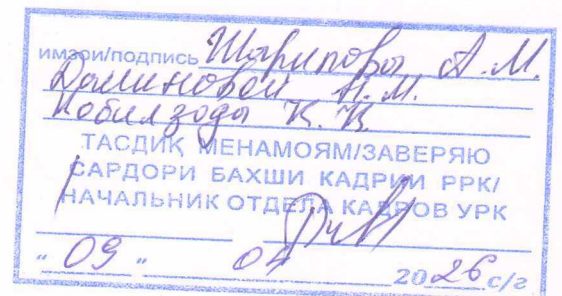 имзои/подпись Шарипова А.М.
Далиновой Н.М.
Кобилзода К.К.
ТАСДИҚ МЕНАМОЯМ/ЗАВЕРЯЮ
САРДОРИ БАХШИ КАДРИИ РРК/
НАЧАЛЬНИК ОТДЕЛА КАДРОВ УРК
"09" 04 2026 с/г